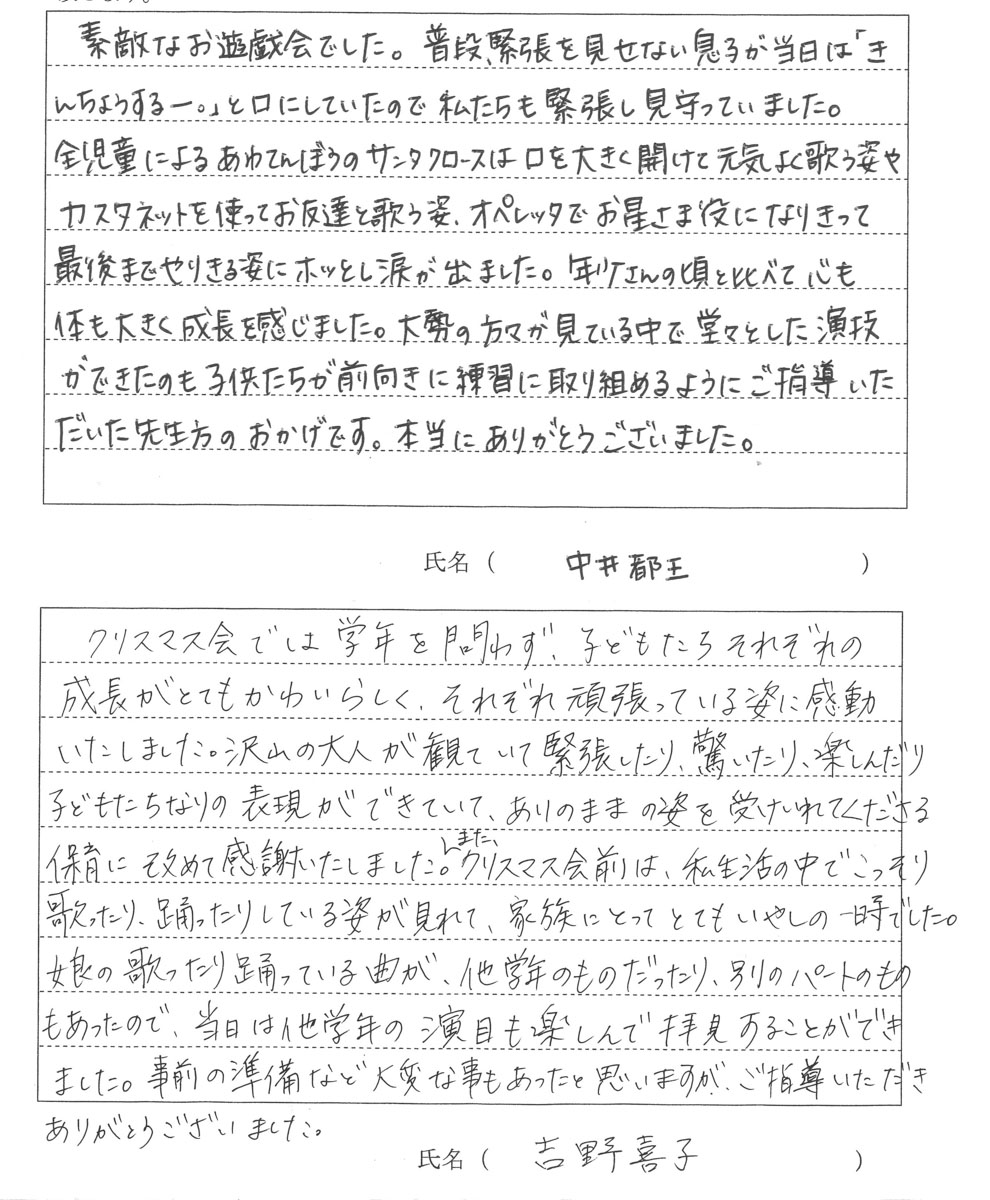 素敵なお遊戯会でした。普段、緊張を見せない息子が当日は「き
んちょうするー。」と口にしていたので私たちも緊張し見守っていました。
全児童によるあわてんぼうのサンタクロースは口を大きく開けて元気よく歌う姿や
カスタネットを使ってお友達と歌う姿、オペレッタでお星さま役になりきって
最後までやりきる姿にホッとし涙が出ました。年少さんの頃と比べて心も
体も大きく成長を感じました。大勢の方々が見ている中で堂々とした演技
ができたのも子供たちが前向きに練習に取り組めるようにご指導いた
だいた先生方のおかげです。本当にありがとうございました。
氏名（ 中井都王 ）
クリスマス会では学年を問わず、子どもたちそれぞれの
成長がとてもかわいらしく、それぞれ頑張っている姿に感動
いたしました。沢山の大人が観ていて緊張したり、驚いたり、楽しんだり
子どもたちなりの表現ができていて、ありのままの姿を受けいれてくださる
保育に改めて感謝いたしました。また、クリスマス会前は、私生活の中でこっそり
歌ったり、踊ったりしている姿が見れて、家族にとってとてもいやしの一時でした。
娘の歌ったり踊っている曲が、他学年のものだったり、別のパートのもの
もあったので、当日は他学年の演目も楽しんで拝見することができ
ました。事前の準備など大変な事もあったと思いますが、ご指導いただき
ありがとうございました。
氏名（ 吉野喜子 ）